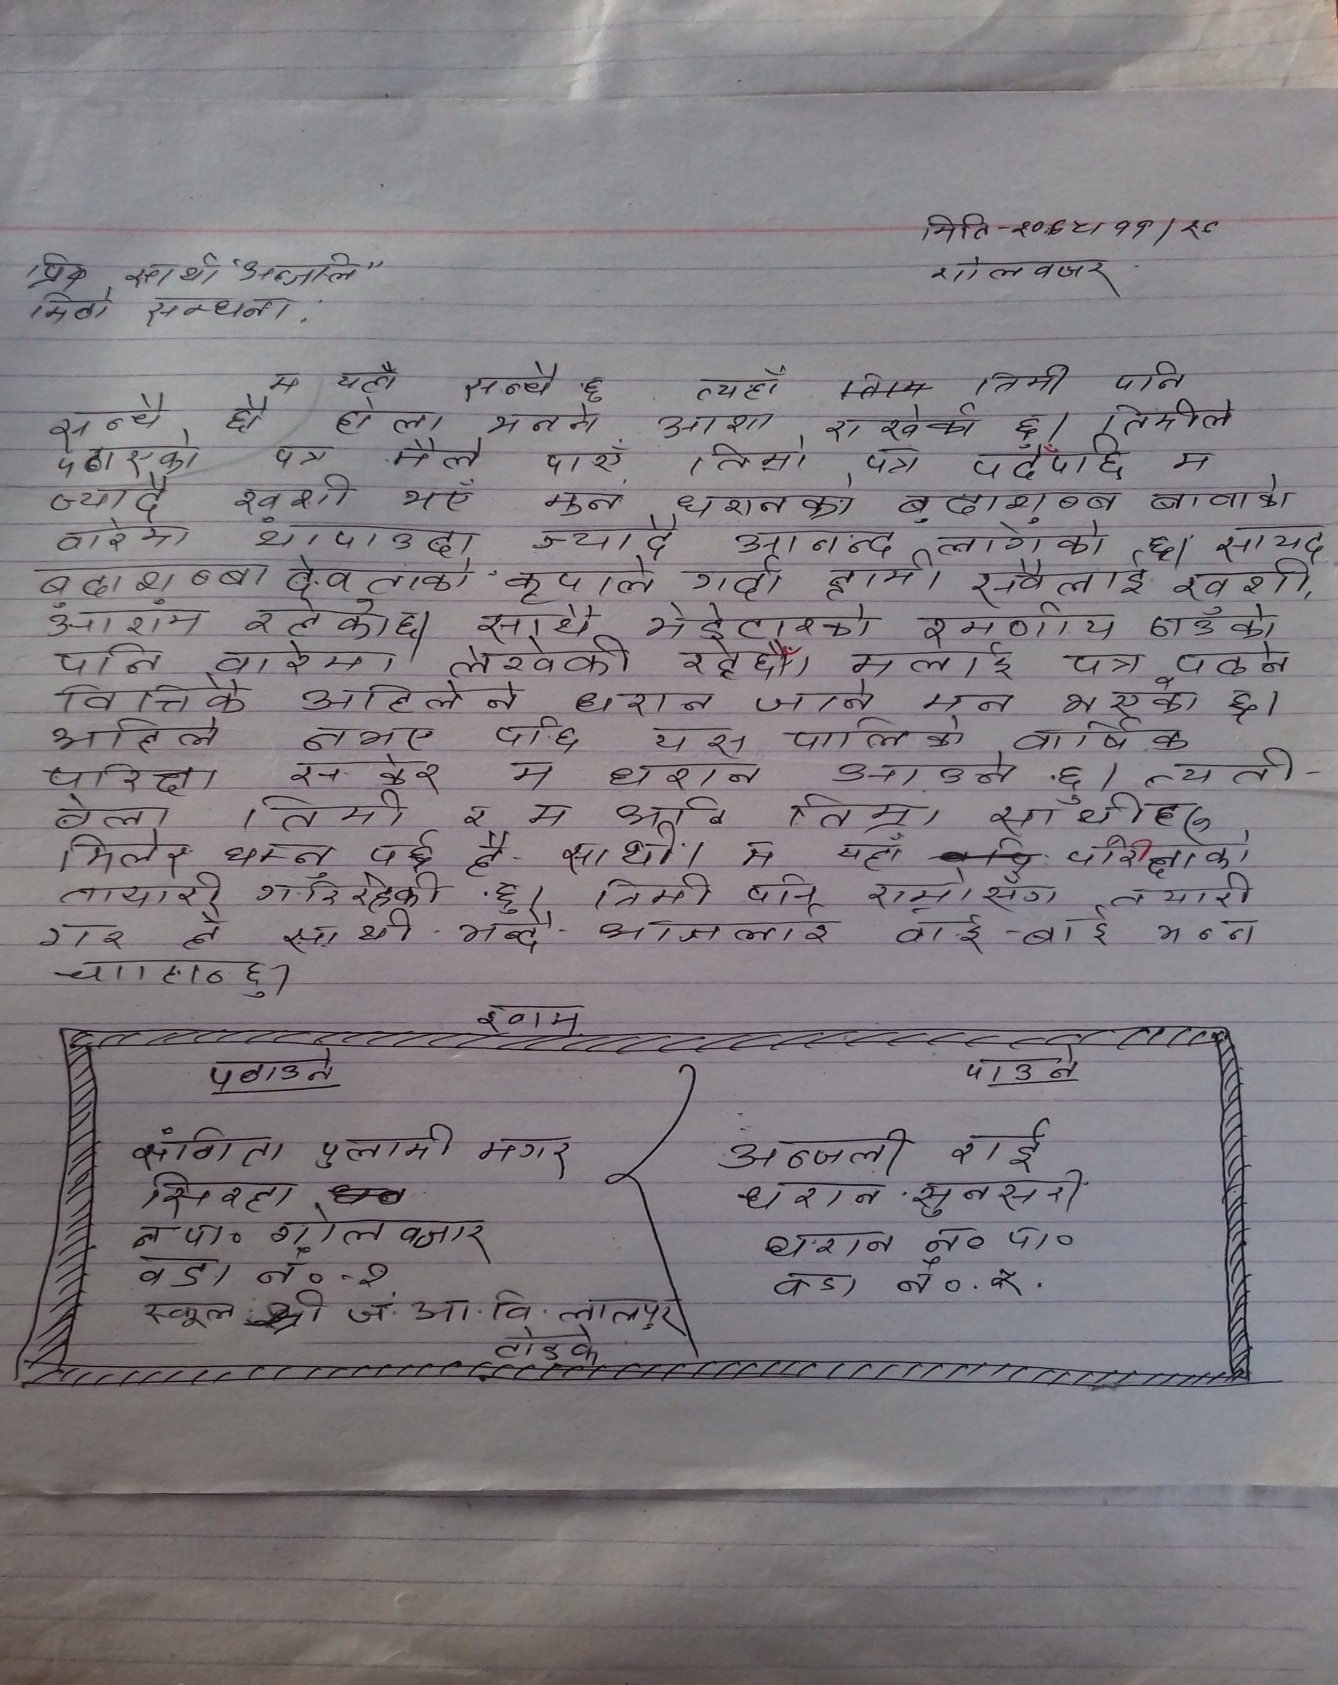 मिति-२०७४/११/२८
गोलवजार
प्रिय साथी "अन्जलि"
मिठो सम्धना,
म यहाँ सन्चै छु त्यहाँ तिमी पनि
सन्चै छौ होला भनने आशा राखेकी छु। तिमीले
पठाएको पत्र मैले पाएँ तिम्रो पत्र पढेँपछि म
ज्यादै खुशी भएँ झन धरानको बुढाशुब्ब बावाको
वारेमा थाापाउदा ज्यादै आनन्द लागेको छ। सायद
बुढाशुब्बा देवताको कृपाले गर्दा हामी सवैलाई खुशी,
आराम रहेकोछ। साथै भेडेटारको रमणीय ठाउँको
पनि वारेमा लेखेकी रहेछौ। मलाई पत्र पढने
वित्तिकै अहिलेने धरान जाने मन भएको छ।
अहिले नभए पछि यस पालिको वार्षिक
परिक्षा सकेर म धरान आउने छु। त्यती-
वेला तिमी र म अनि तिम्रा साथीहरु
मिलेर घुम्न पर्छ है साथी। म यहाँ परिक्षाको
तायारी गरिरहेकी छु। तिमी पनि राम्रोसँग तयारी
गर है साथी भन्दै आजलाई वाई-बाई भन्न
चााहान्छु।
खाम
पठाउने
पाउने
संगिता पुलामी मगर
अन्जली राई
सिरहा
धरान सुनसरी
न पा० गोलवजार
धरान न० पा०
वडा नं०-२
वडा नं०.
स्कूल श्री ज. आ. वि. लालपुर
तोडके